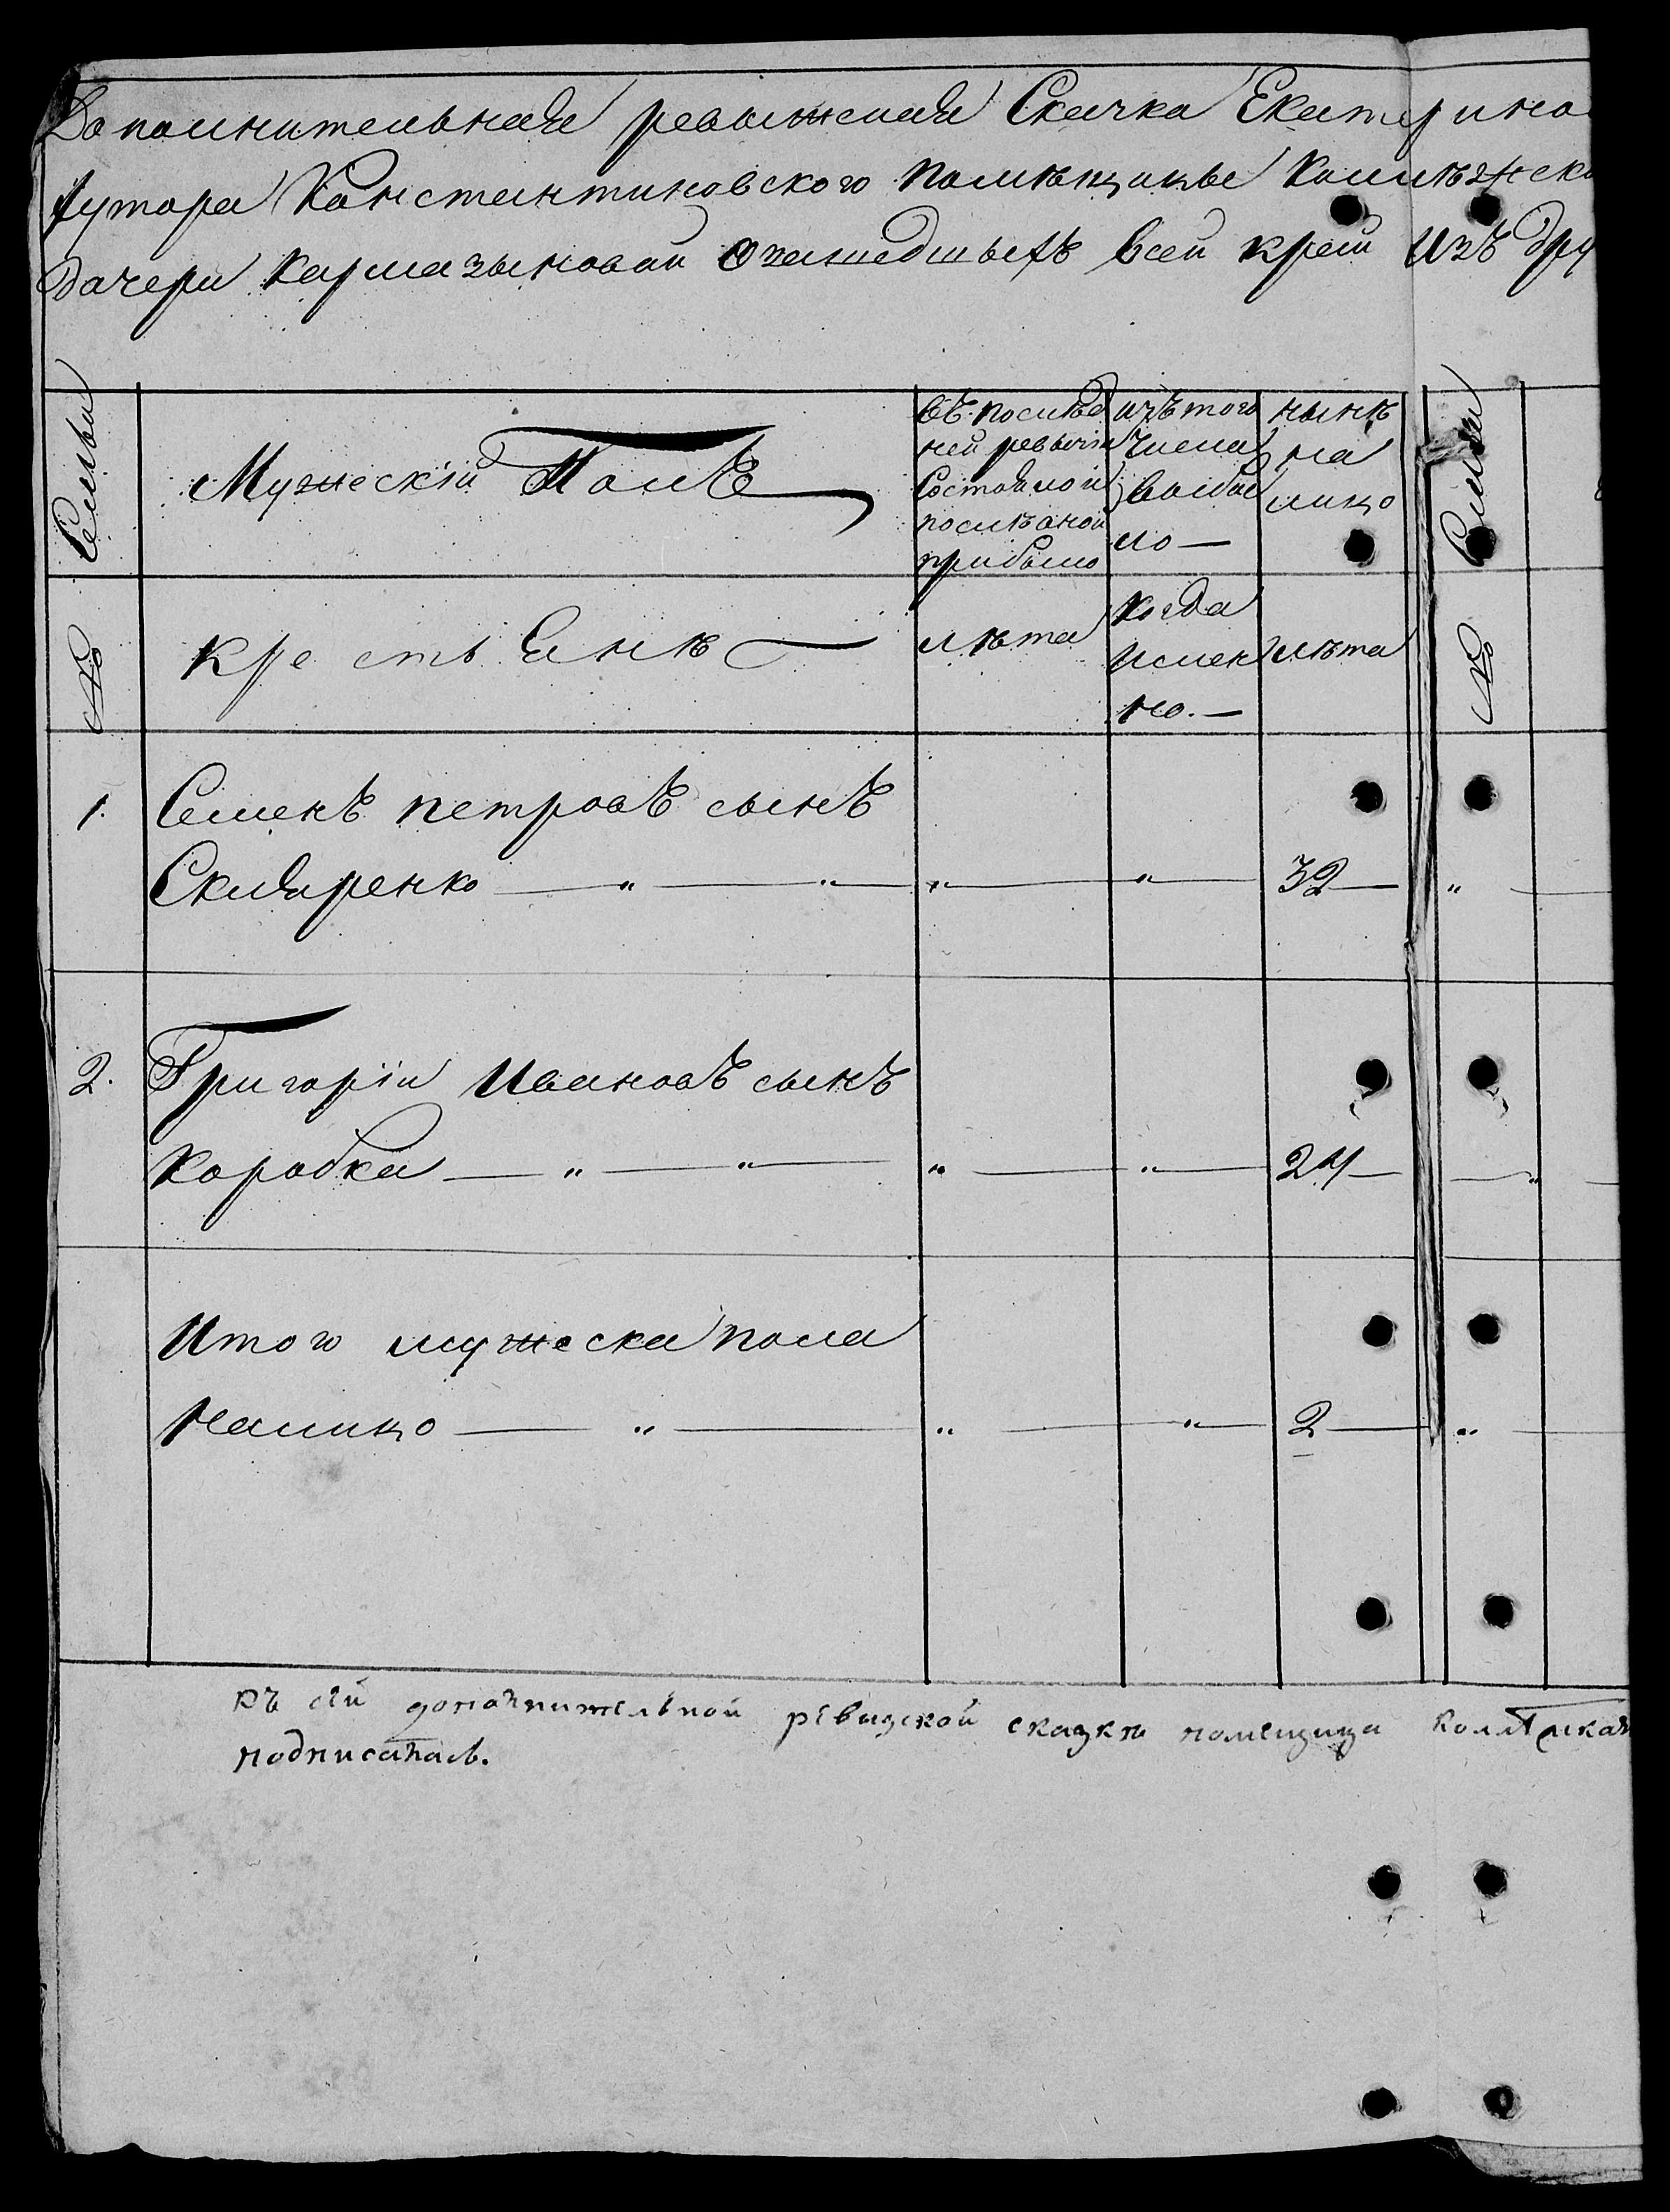 Дополнительная ревижская Скачка Екатерино
хутора Константиновского помѣщицы Коллѣжско
дочери Кармазыновой Озашедшыхъ всей край Изъ дру
Семьи
Мужескій Полъ
въ послѣд
ней ревызіи
Состояло и
послѣ оной
прибыло
изъ того
Числа
выбы
ло —
нынѣ
на
лицо
Семьи
№
Крестьянѣ
лѣта
Когда
Имен
но. —
лѣта
№
1. Семенъ петровъ сынъ
Скляренко — " — " — " — " — 32 — "
2. Григорій Ивановъ сынъ
Коробка — " — " — " — " — 24 — "
Итого мужеска пола
Налицо — " — " — " — 2 — "
Къ сей дополнительной ревизской сказкѣ помещица
подписалась.